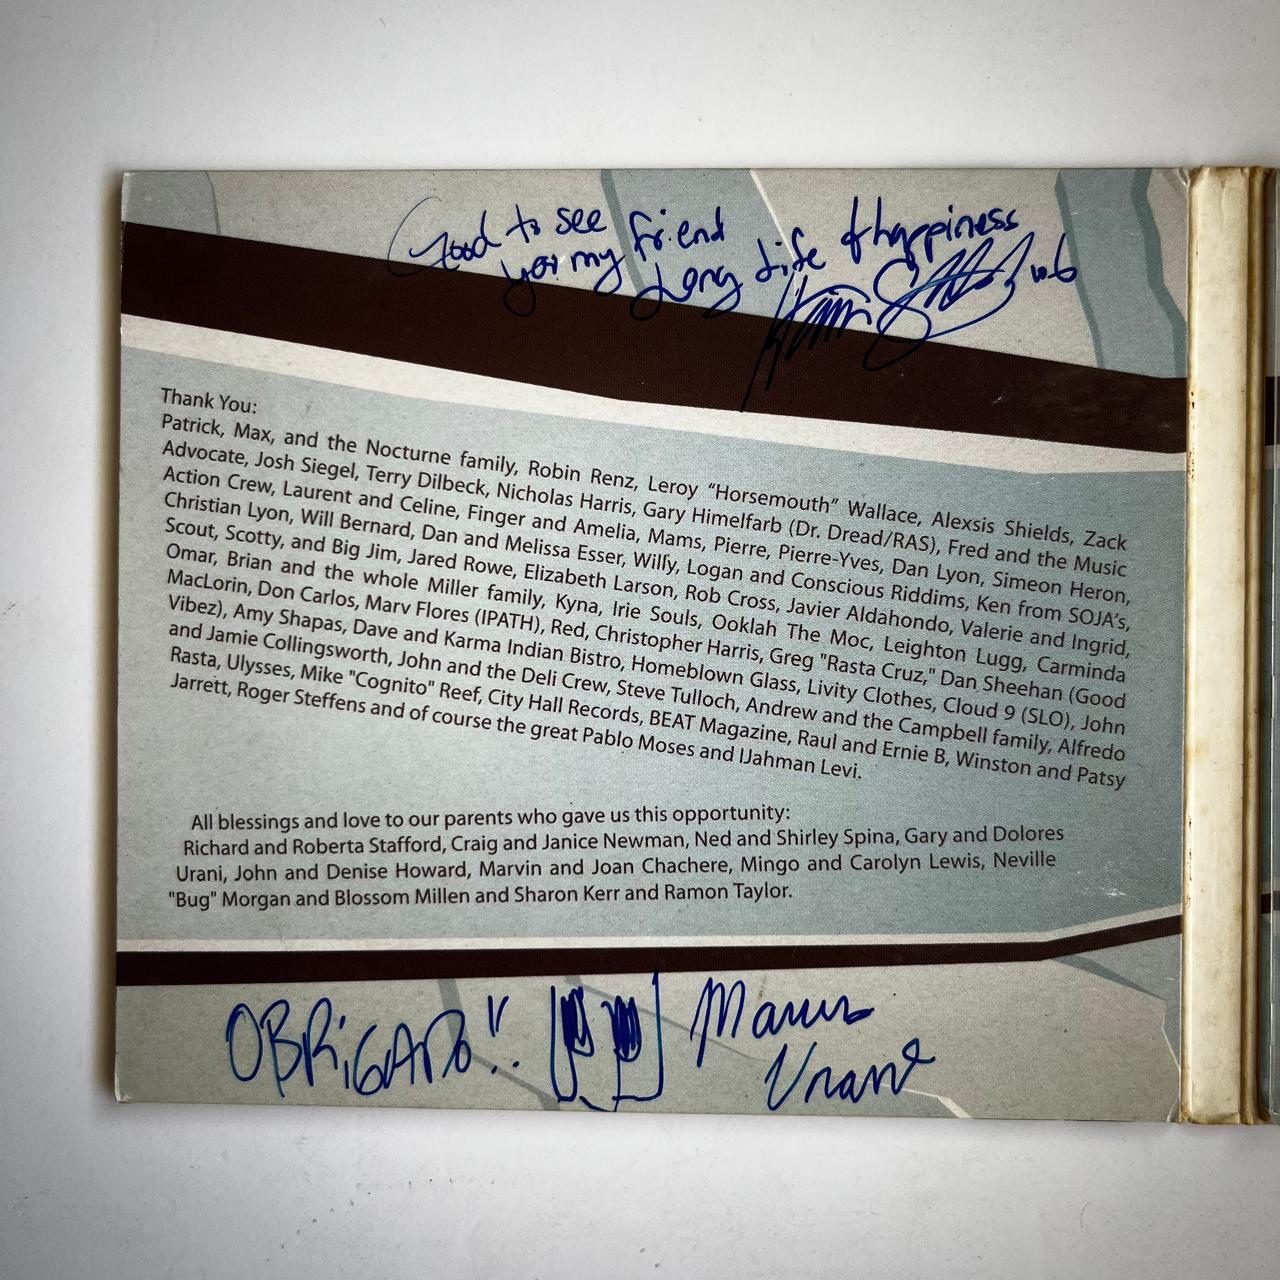 Good to see
you my friend
Long Life & happiness
Thank You:
Patrick, Max, and the Nocturne family, Robin Renz, Leroy “Horsemouth” Wallace, Alexsis Shields, Zack
Advocate, Josh Siegel, Terry Dilbeck, Nicholas Harris, Gary Himelfarb (Dr. Dread/RAS), Fred and the Music
Action Crew, Laurent and Celine, Finger and Amelia, Mams, Pierre, Pierre-Yves, Dan Lyon, Simeon Heron,
Christian Lyon, Will Bernard, Dan and Melissa Esser, Willy, Logan and Conscious Riddims, Ken from SOJA’s,
Scout, Scotty, and Big Jim, Jared Rowe, Elizabeth Larson, Rob Cross, Javier Aldahondo, Valerie and Ingrid,
Omar, Brian and the whole Miller family, Kyna, Irie Souls, Ooklah The Moc, Leighton Lugg, Carminda
MacLorin, Don Carlos, Marv Flores (IPATH), Red, Christopher Harris, Greg "Rasta Cruz," Dan Sheehan (Good
Vibez), Amy Shapas, Dave and Karma Indian Bistro, Homeblown Glass, Livity Clothes, Cloud 9 (SLO), John
and Jamie Collingsworth, John and the Deli Crew, Steve Tulloch, Andrew and the Campbell family, Alfredo
Rasta, Ulysses, Mike "Cognito" Reef, City Hall Records, BEAT Magazine, Raul and Ernie B, Winston and Patsy
Jarrett, Roger Steffens and of course the great Pablo Moses and IJahman Levi.
All blessings and love to our parents who gave us this opportunity:
Richard and Roberta Stafford, Craig and Janice Newman, Ned and Shirley Spina, Gary and Dolores
Urani, John and Denise Howard, Marvin and Joan Chachere, Mingo and Carolyn Lewis, Neville
"Bug" Morgan and Blossom Millen and Sharon Kerr and Ramon Taylor.
OBRiGADO!!
Marcus
Urani